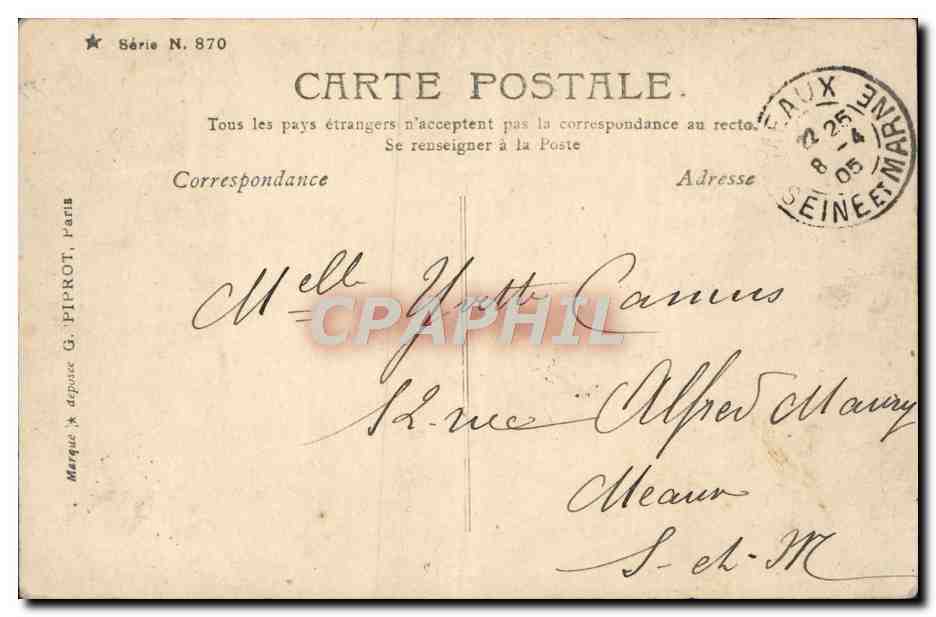 ★ Série N. 870
CARTE POSTALE.
Tous les pays étrangers n'acceptent pas la correspondance au recto.
Se renseigner à la Poste
Correspondance
Adresse
EAUX
22 25
8 - 4
05
SEINE ET MARNE
Marque ★ déposée G. PIPROT, Paris
Melle Yvette Camus
CPAPHIL
12 rue Alfred Maury
Meaux
S-et-M